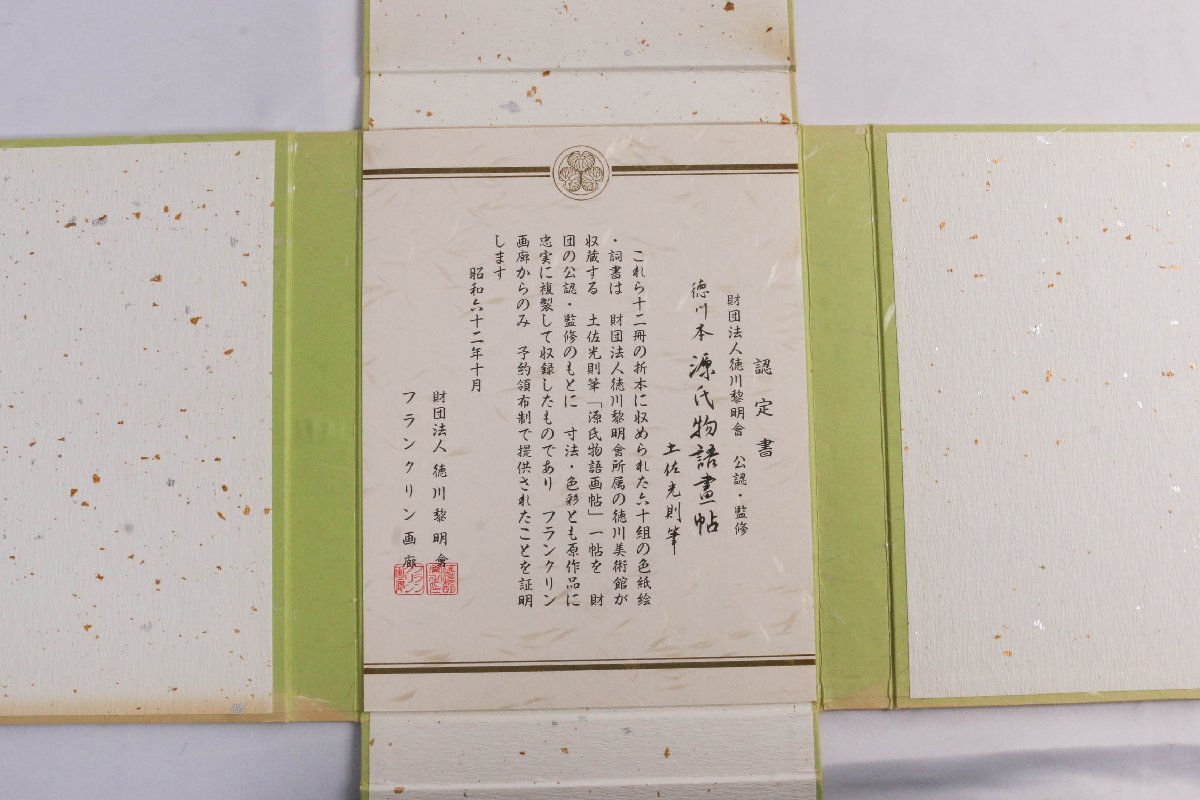 認定書
財団法人徳川黎明會　公認・監修
徳川本 源氏物語畫帖
土佐光則筆
これら十二冊の折本に収められた六十組の色紙絵
・詞書は　財団法人徳川黎明會所属の徳川美術館が
収蔵する　土佐光則筆「源氏物語画帖」一帖を　財
団の公認・監修のもとに　寸法・色彩とも原作品に
忠実に複製して収録したものであり　フランクリン
画廊からのみ　予約領布制で提供されたことを証明
します
昭和六十二年十月
財団法人 徳川黎明會
フランクリン画廊